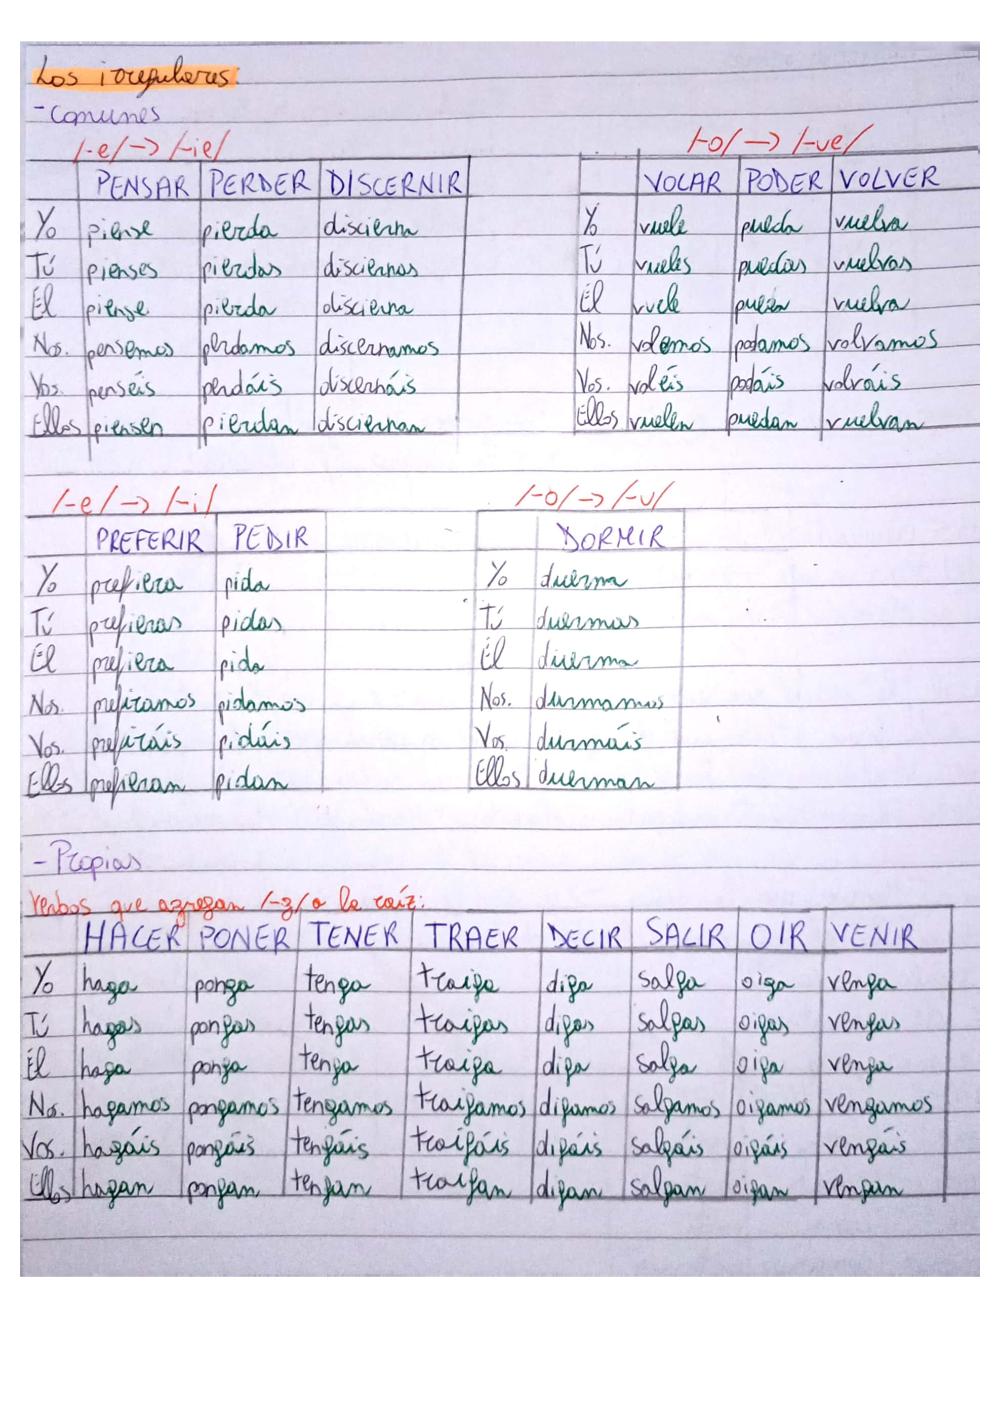 Los irregulares:
- Comunes
/-e/ → /-ie/ /-o/ → /-ue/
PENSAR PERDER DISCERNIR VOLAR PODER VOLVER
Yo piense pierda discierna Yo vuele pueda vuelva
Tú pienses pierdas disciernas Tú vueles puedas vuelvas
Él piense pierda discierna Él vuele pueda vuelva
Nos. pensemos perdamos discernamos Nos. volemos podamos volvamos
Vos. penséis perdáis discernáis Vos. voléis podáis volváis
Ellos piensen pierdan disciernan Ellos vuelen puedan vuelvan
/-e/ → /-i/ /-o/ → /-u/
PREFERIR PEDIR DORMIR
Yo prefiera pida Yo duerma
Tú prefieras pidas Tú duermas
Él prefiera pida Él duerma
Nos. prefiramos pidamos Nos. durmamos
Vos. prefiráis pidáis Vos. durmáis
Ellos prefieran pidan Ellos duerman
- Propias
Verbos que agregan /-g/ a la raíz:
HACER PONER TENER TRAER DECIR SALIR OIR VENIR
Yo haga ponga tenga traiga diga salga oiga venga
Tú hagas pongas tengas traigas digas salgas oigas vengas
Él haga ponga tenga traiga diga salga oiga venga
Nos. hagamos pongamos tengamos traigamos digamos salgamos oigamos vengamos
Vos. hagáis pongáis tengáis traigáis digáis salgáis oigáis vengáis
Ellos hagan pongan tengan traigan digan salgan oigan vengan